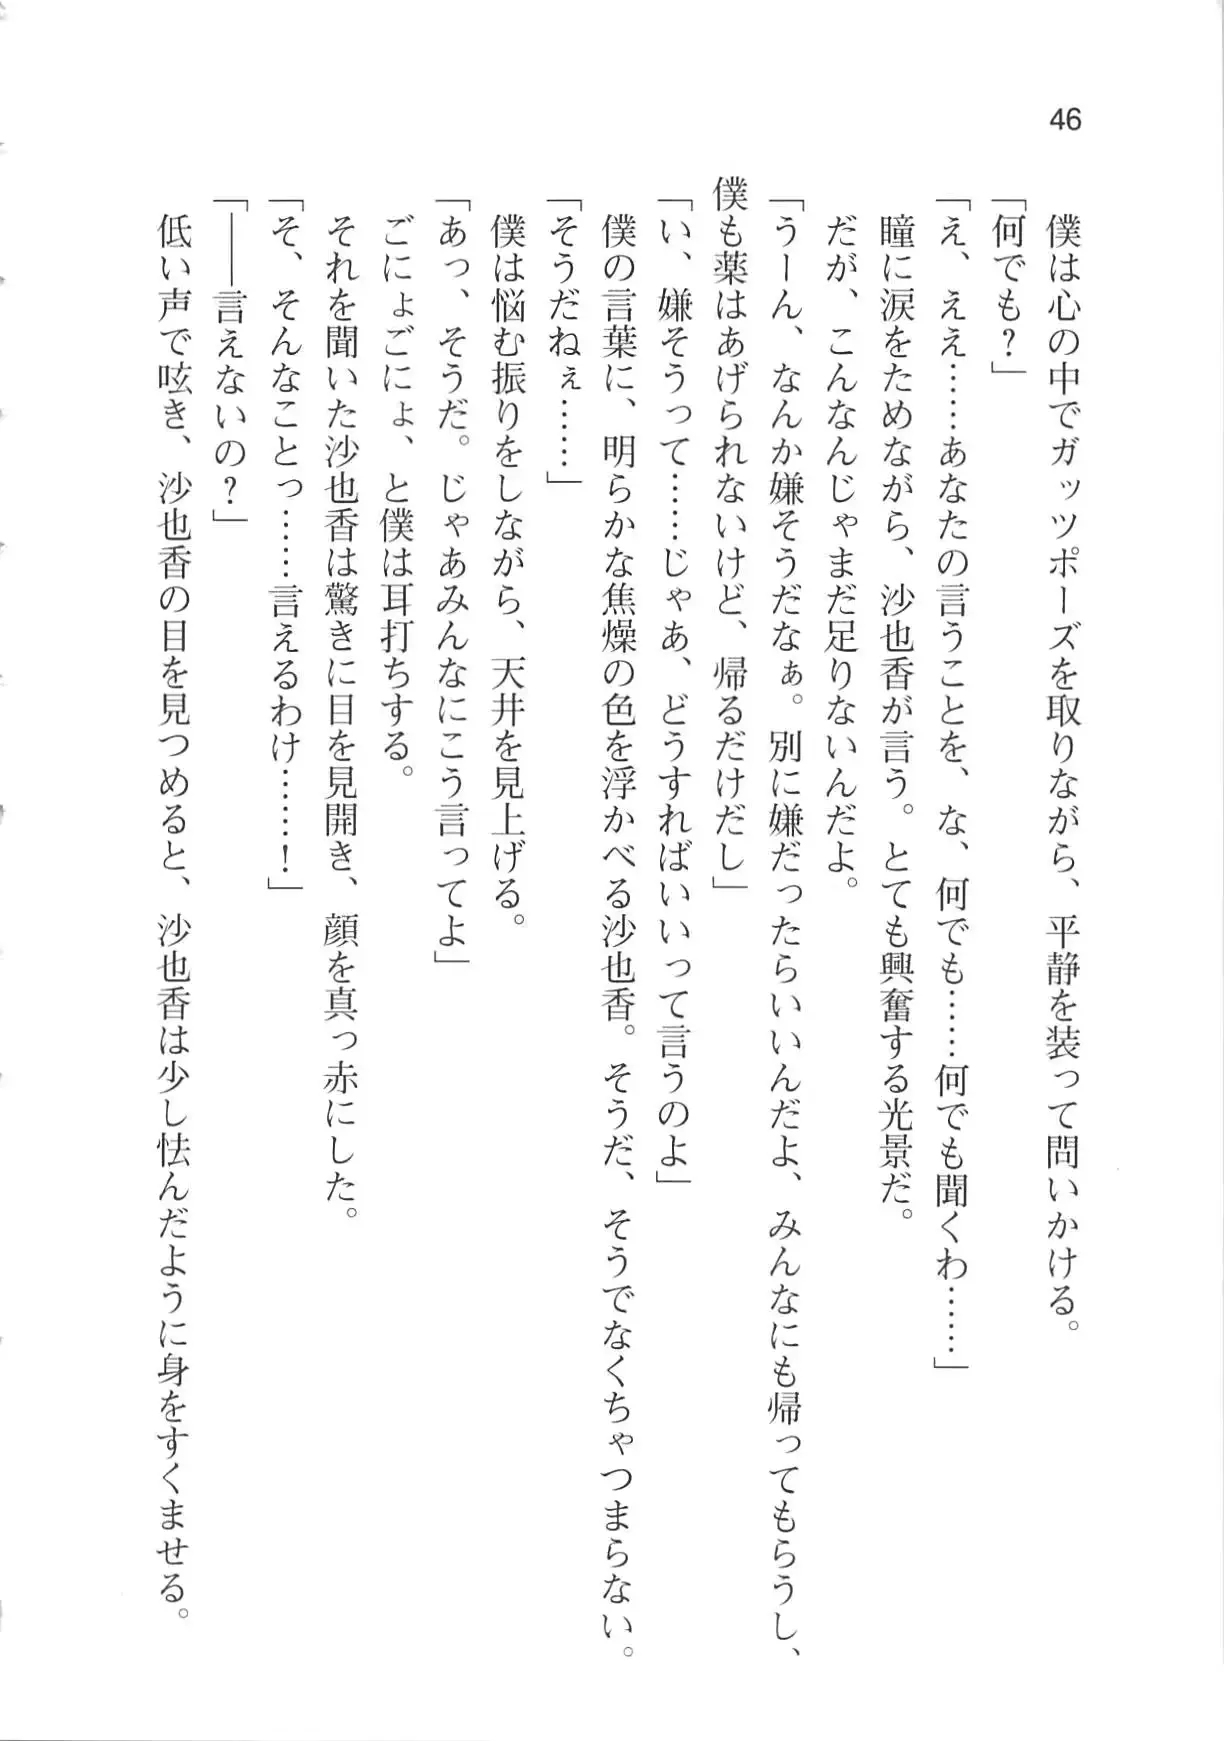 46
僕は心の中でガッツポーズを取りながら、平静を装って問いかける。
「何でも?」
「え、ええ……あなたの言うことを、な、何でも……何でも聞くわ……」
瞳に涙をためながら、沙也香が言う。とても興奮する光景だ。
だが、こんなんじゃまだ足りないんだよ。
「うーん、なんか嫌そうだなぁ。別に嫌だったらいいんだよ、みんなにも帰ってもらうし、
僕も薬はあげられないけど、帰るだけだし」
「い、嫌そうって……じゃあ、どうすればいいって言うのよ」
僕の言葉に、明らかな焦燥の色を浮かべる沙也香。そうだ、そうでなくちゃつまらない。
「そうだねぇ……」
僕は悩む振りをしながら、天井を見上げる。
「あっ、そうだ。じゃあみんなにこう言ってよ」
ごにょごにょ、と僕は耳打ちする。
それを聞いた沙也香は驚きに目を見開き、顔を真っ赤にした。
「そ、そんなことっ……言えるわけ……!」
「――言えないの?」
低い声で呟き、沙也香の目を見つめると、沙也香は少し怯んだように身をすくませる。